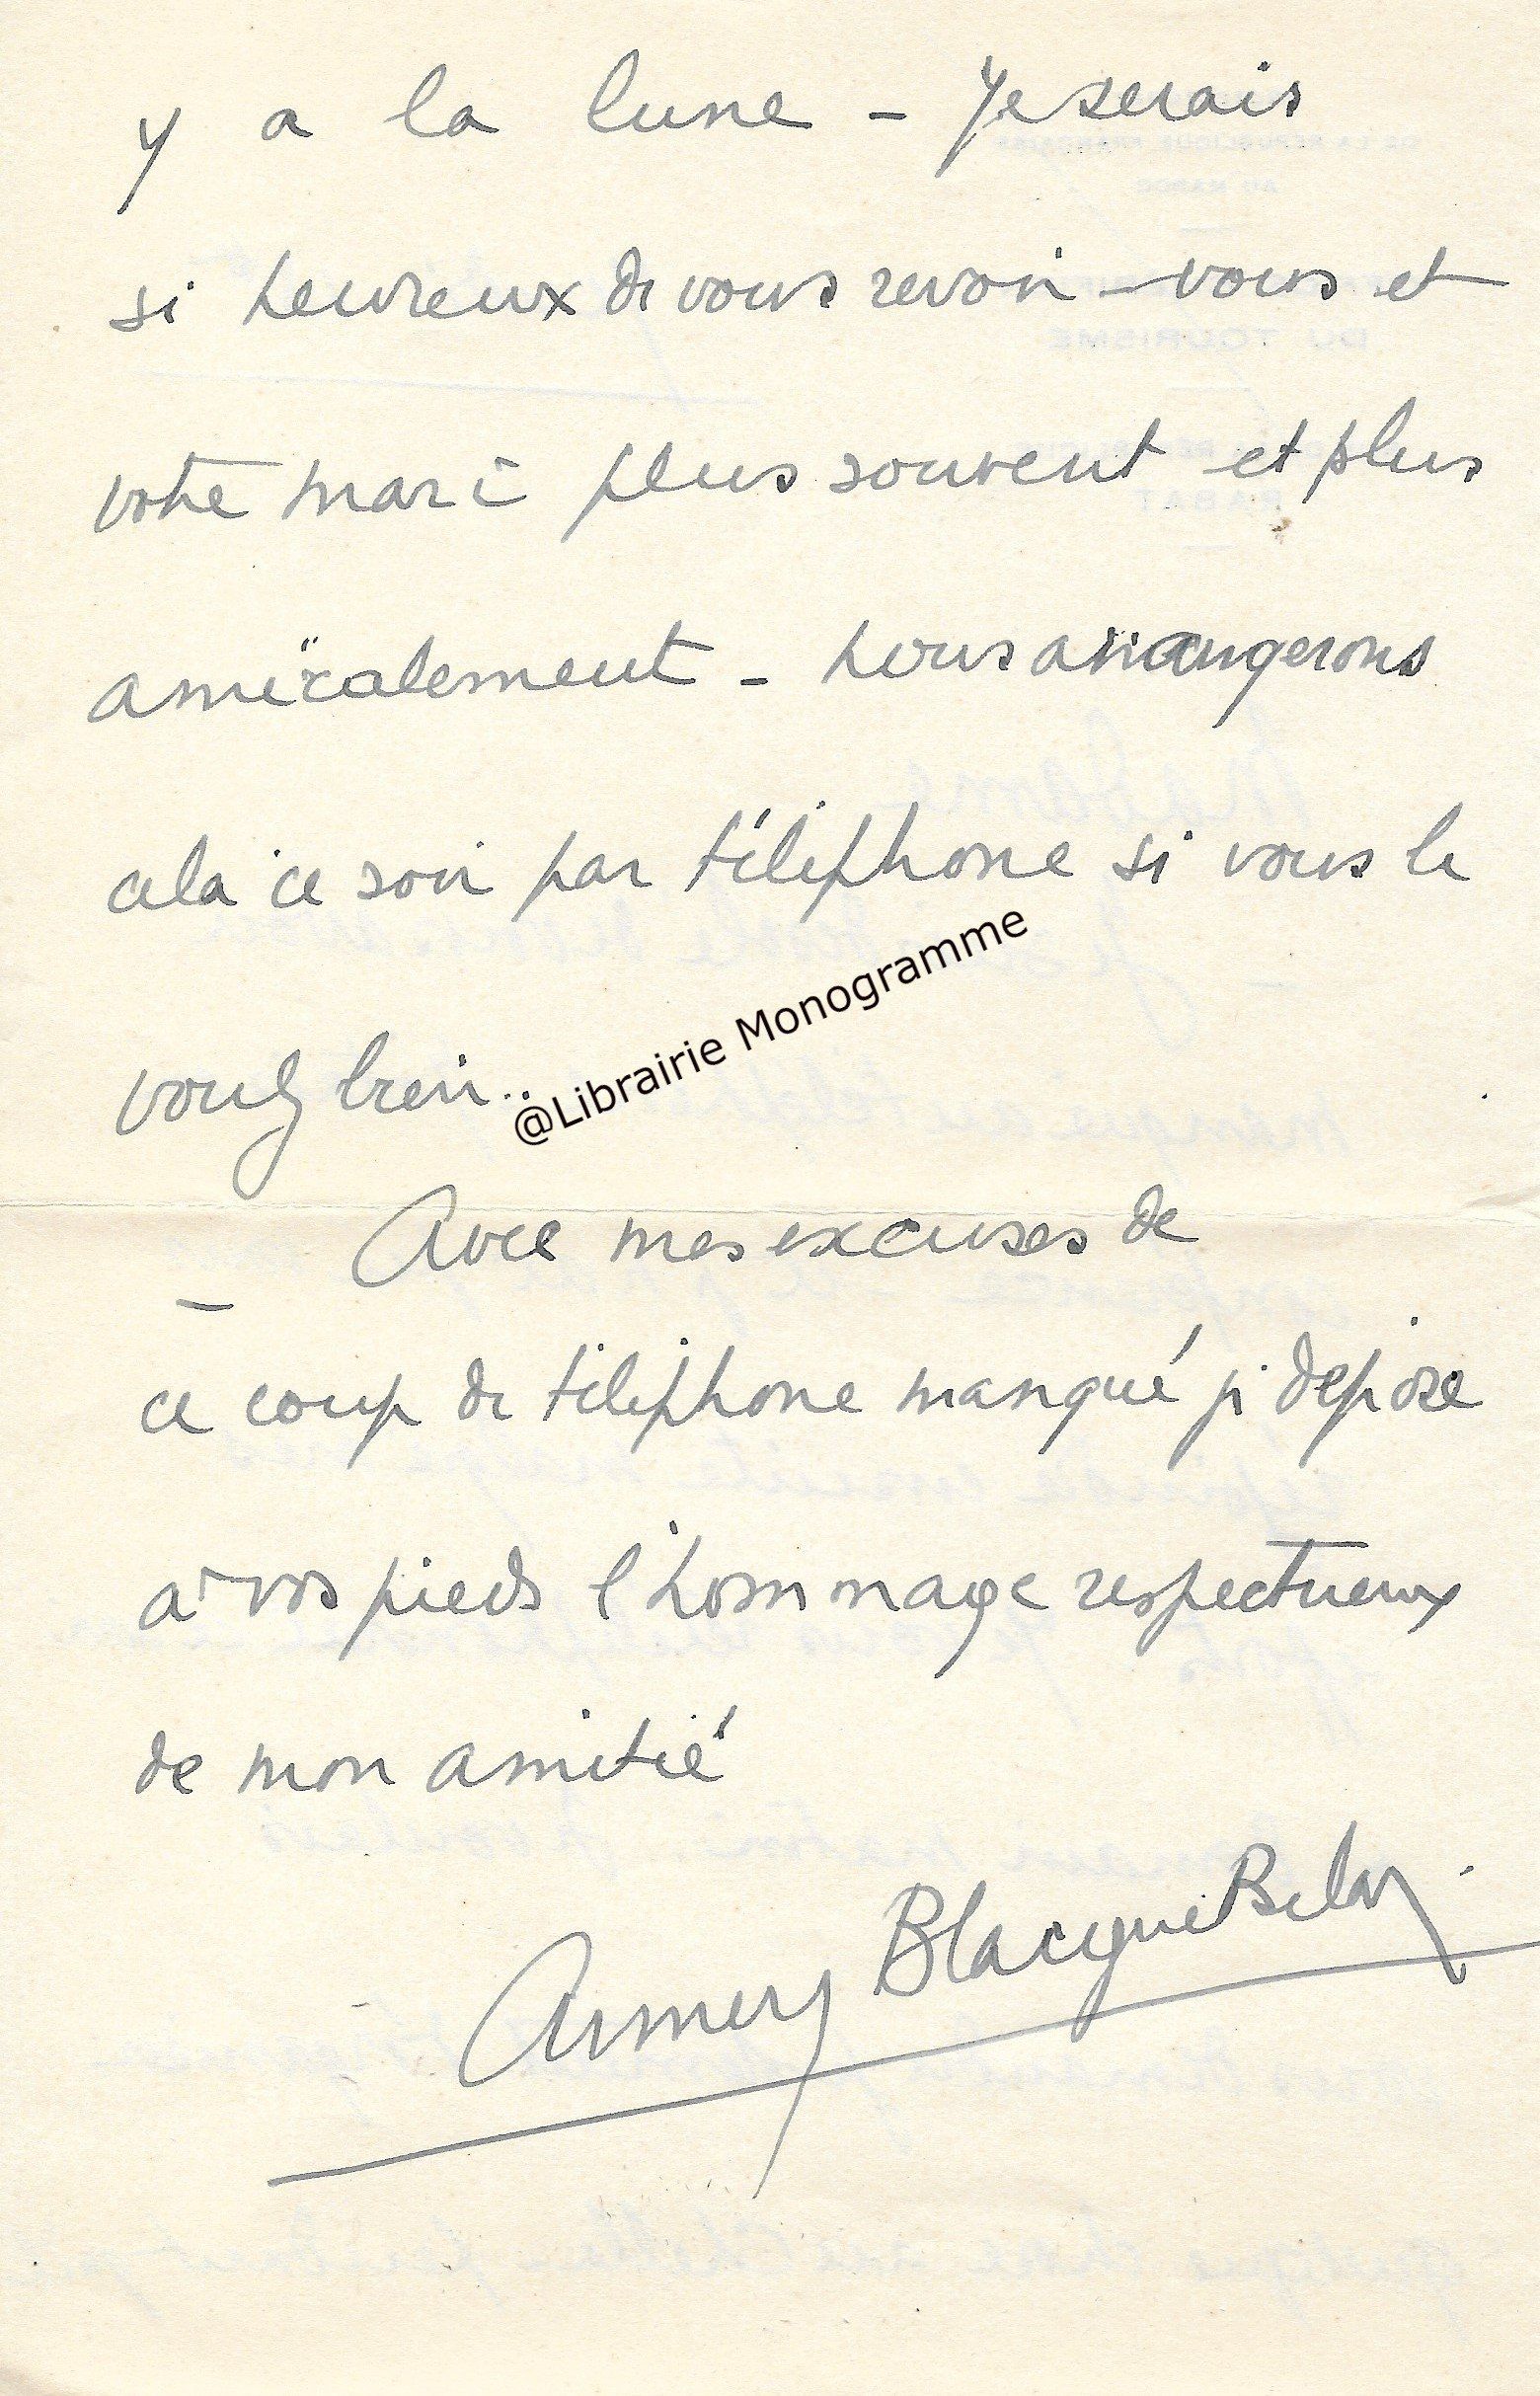 y a la lune - Je serais
si heureux de vous revoir - vous et
votre mari plus souvent et plus
amicalement - nous arrangerons
cela ce soir par téléphone si vous le
voulez bien..
@Librairie Monogramme
Avec mes excuses de
ce coup de téléphone manqué je dépose
à vos pieds l'hommage respectueux
de mon amitié
Aimery Blacque Belair
DU TOURISME